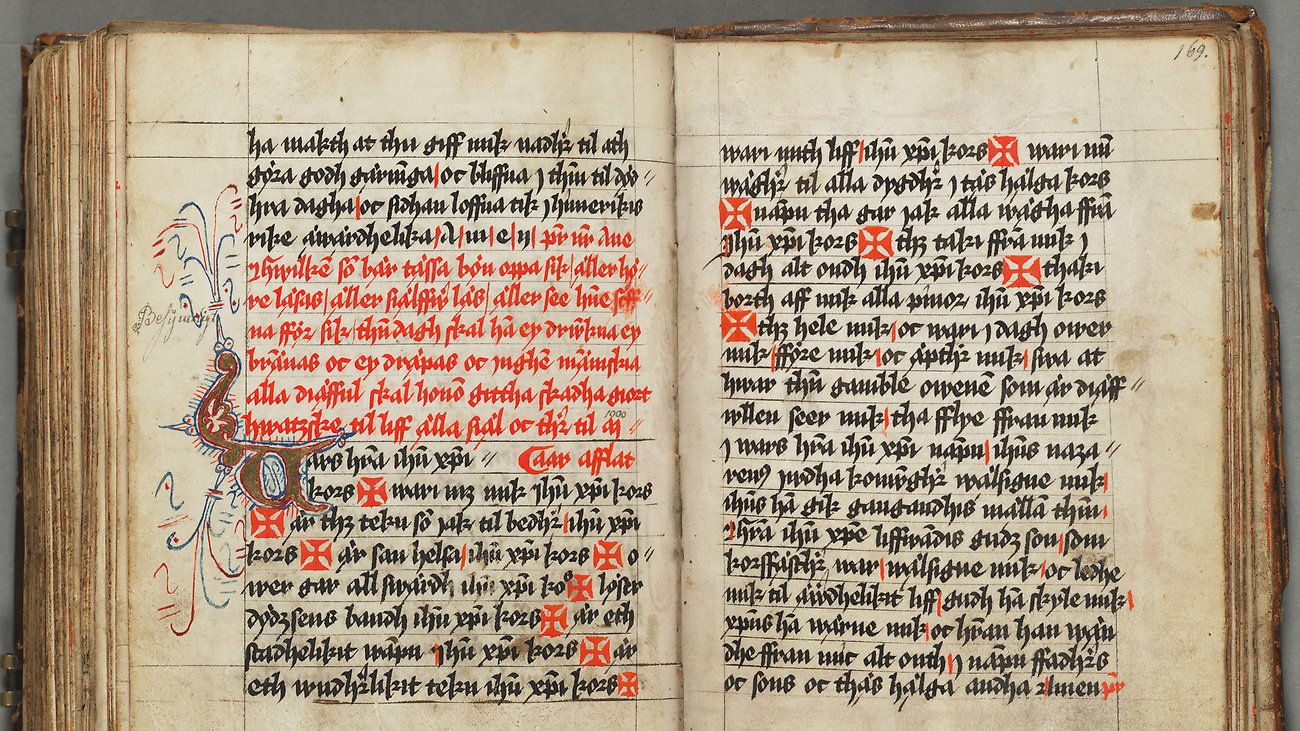 ha makth at thu giff mik nadher til ath
göra godh gärninga oc bliffua j thin til död
hra dagha oc sidhan loffua tik j himerikis
rike äwärdhelika A m e n pr nr Aue
Jhwilkē sō bär tässa bön oppa sik äller hö
re läsas äller siälffwr läs äller see hēne scff
na fför sik thn dagh skal hā ey drwkna ey
brännas oc ey dräpas oc jnghē människia
alla diäfful skal honō gittha skadha giort
hwatzske til liff älla siäl oc thr til äj
1000
Uars hra ihu xpi
Caar afflat
kors ✠ wari mz mik ihu xpi kors
✠ är thz tekn sō jak til bedhr ihu xpi
kors ✠ är san helsa ihu xpi kors ✠ o
wer gar all swärdh ihu xpi kors ✠ löser
dödzsens bandh ihu xpi kors ✠ är eth
stadhelikit wäpn ihu xpi kors ✠ är
eth wndhrlikit tekn ihu xpi kors ✠
169.
wari mith liff ihu xpi kors ✠ wari mī
wäghr til alla dygdhr j täs hälga kors
✠ näpn tha gar jak alla wägha ffrā
ihu xpi kors ✠ thz taki ffrā mik j
dagh alt ondh ihu xpi kors ✠ thaki
borth aff mik alla pinor ihu xpi kors
✠ thz hele mik oc wari j dagh ower
mik fföre mik oc äpthr mik swa at
hwar thn gamble owenē som är diäff
wllen seer mik tha fflye ffran mik
j wars hra ihu xpi näpn ihus naza
renꝰ jwdha konwghr wälsigne mik
ihus hā gik gangandhis mällā thm
hra ihu xpe liffwādis gudz son som
korsfästhr war wälsigne mik oc ledhe
mik til äwdhelikit liff gudh hā skyle mik
xpus hā wärne mik oc hran han wän
dhe ffran mic alt onth j näpn ffadhrs
oc sons oc thäs hälga andha Amen pr